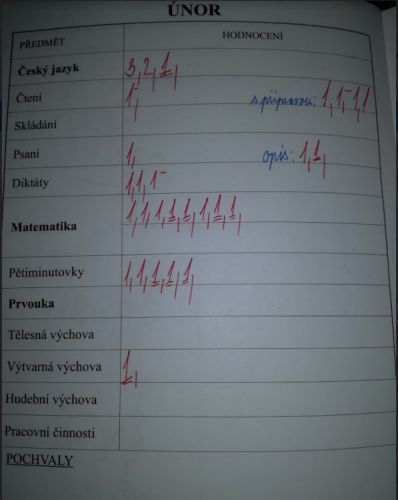 ÚNOR
PŘEDMĚT HODNOCENÍ
Český jazyk 3, 2, 1,
Čtení 1,- s přípravou: 1, 1,- 1, 1
Skládání
Psaní 1, opis: 1, 1,
Diktáty 1, 1, 1-
Matematika 1, 1, 1, 1, 1, 1, 1, 1,
Pětiminutovky 1, 1, 1, 1, 1,
Prvouka
Tělesná výchova
Výtvarná výchova 1,
Hudební výchova
Pracovní činnosti
POCHVALY